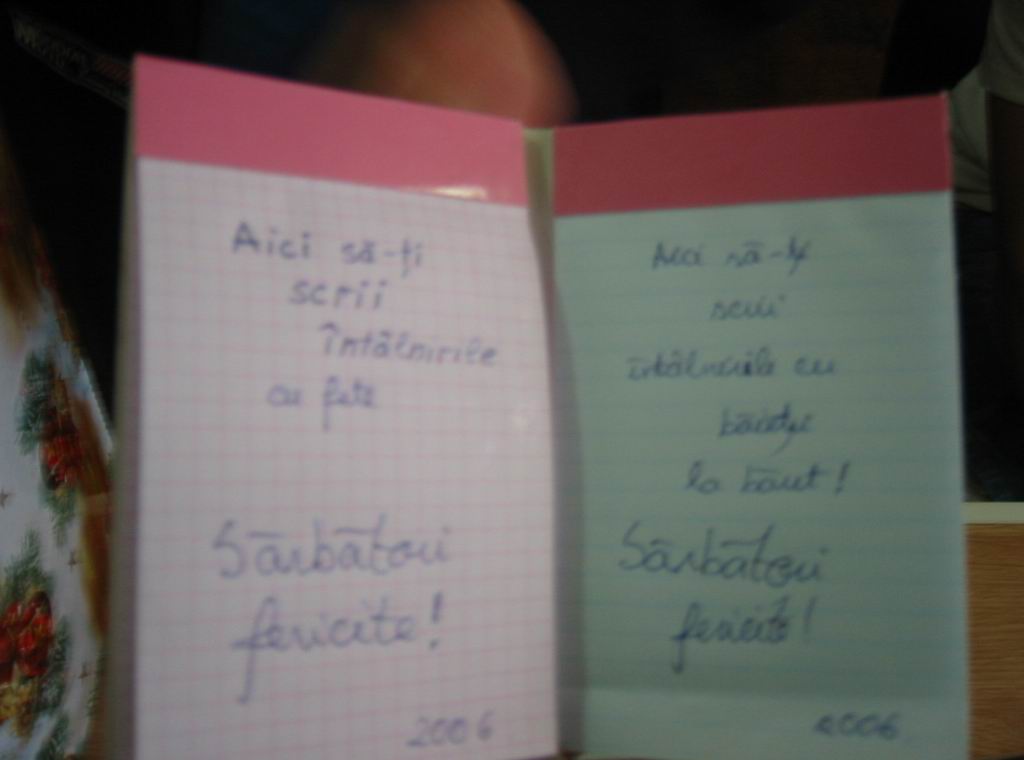 Aici să-ți
scrii
întâlnirile
cu fete
Sărbători
fericite!
2006
Aici să-ți
scrii
întâlnirile cu
băieții
la băut!
Sărbători
fericite!
2006